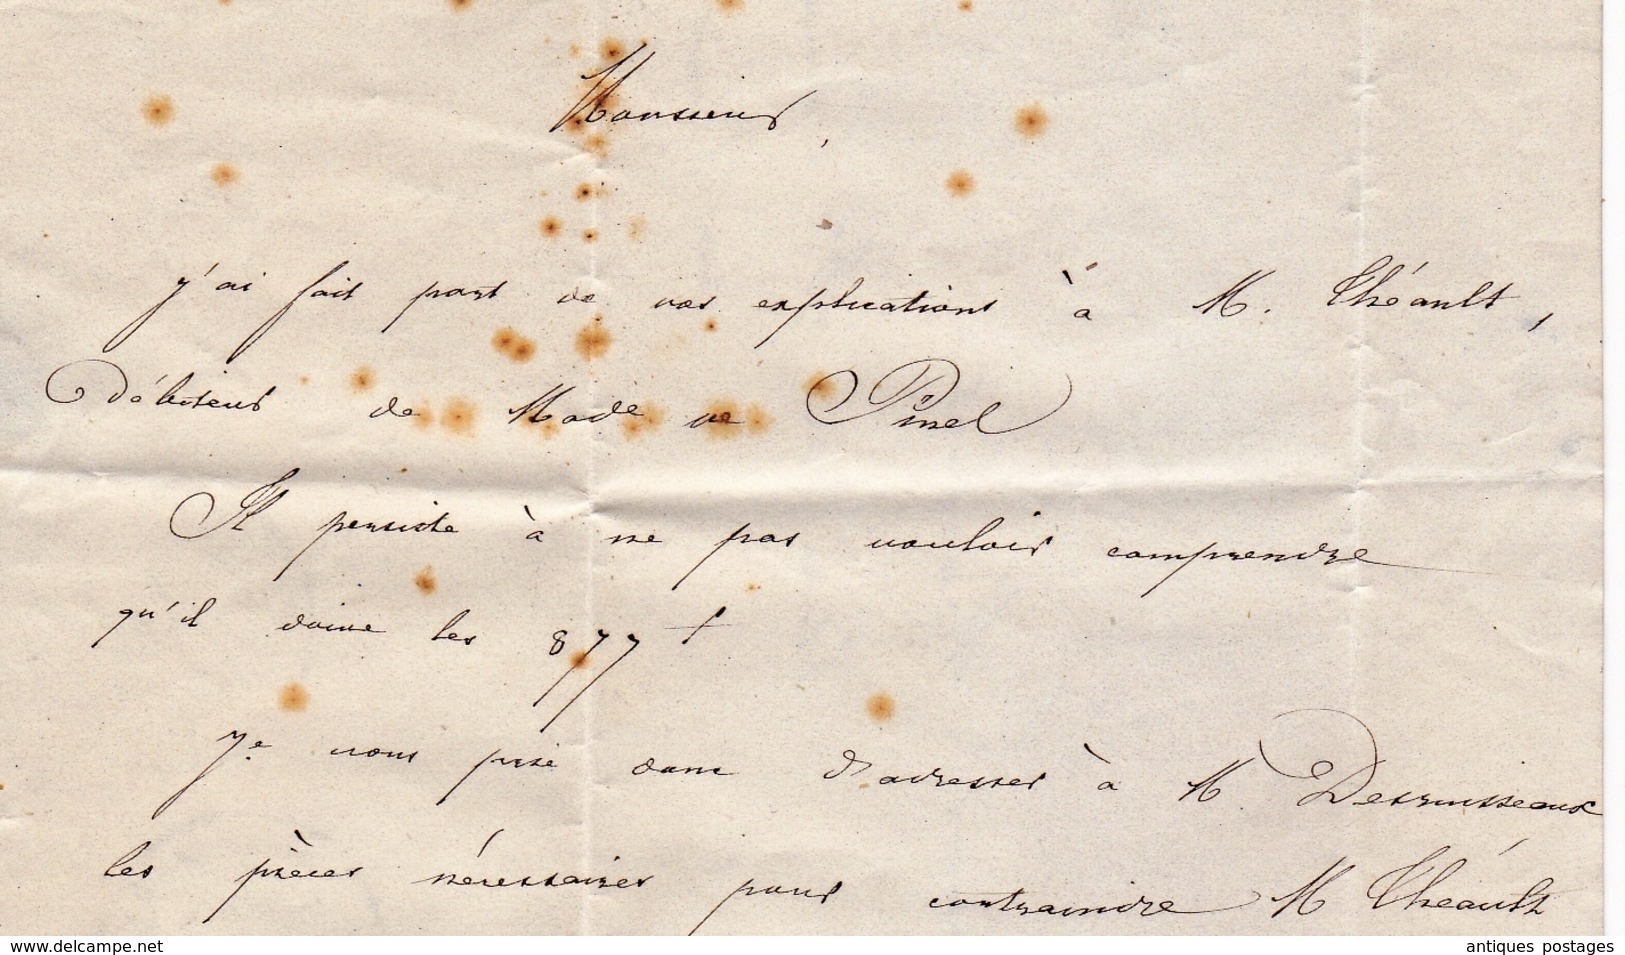 Monsieur,
j'ai fait part de vos explications à M. Théault,
débiteur de Made de Pinel
Il persiste à ne pas vouloir comprendre
qu'il doive les 877 f
Je vous prie donc d'adresser à M. Desruisseaux
les pièces nécessaires pour contraindre M Théault
www.delcampe.net
antiques postages